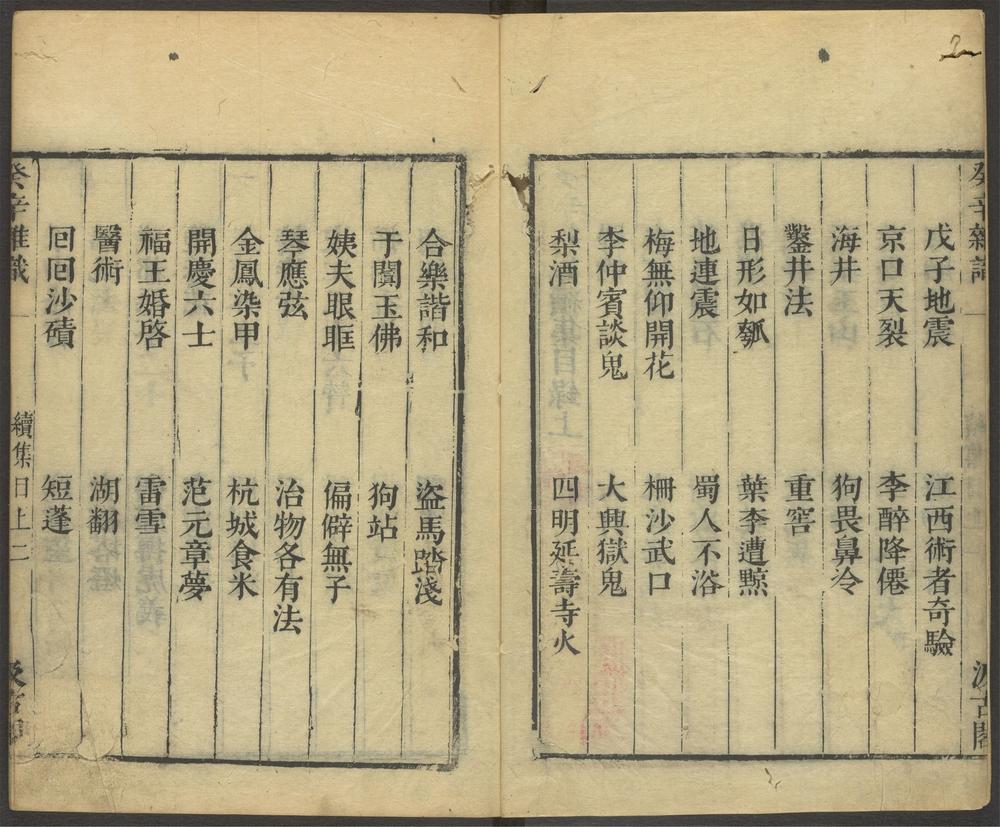 癸辛雜識
戊子地震　江西術者奇驗
京口天裂　李醉降僊
海井　狗畏鼻冷
鑿井法　重窖
日形如瓠　葉李遭黥
地連震　蜀人不浴
梅無仰開花　柵沙武口
李仲賓談鬼　大興獄鬼
梨酒　四明延壽寺火
汲古閣
合樂諧和　盜馬踏淺
于闐玉佛　狗站
姨夫眼眶　偏僻無子
琴應弦　治物各有法
金鳳染甲　杭城食米
開慶六士　范元章夢
福王婚啓　雷雪
醫術　湖翻
回回沙磧　短蓬
癸辛雜識　續集目上　二